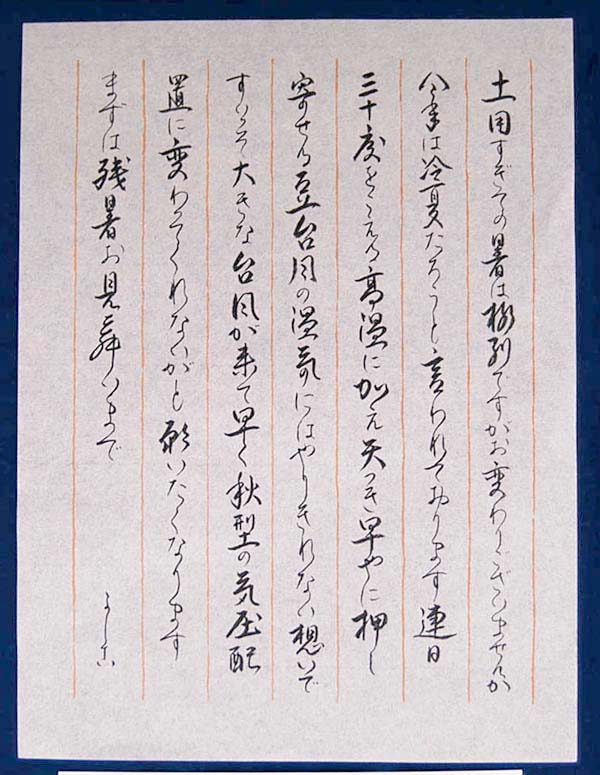 土用すぎての暑は格別ですがお変わりございませんか
今年は冷夏だろうと言われております連日
三十度をこえる高温に加え天つき早やに押し
寄せる豆台风の湿気にはやりきれない想いで
すいっそ大きな台风が来て早く秋型の気圧配
置に変わってくれないかと願いたくなります
まずは残暑お見舞いまで
よしこ